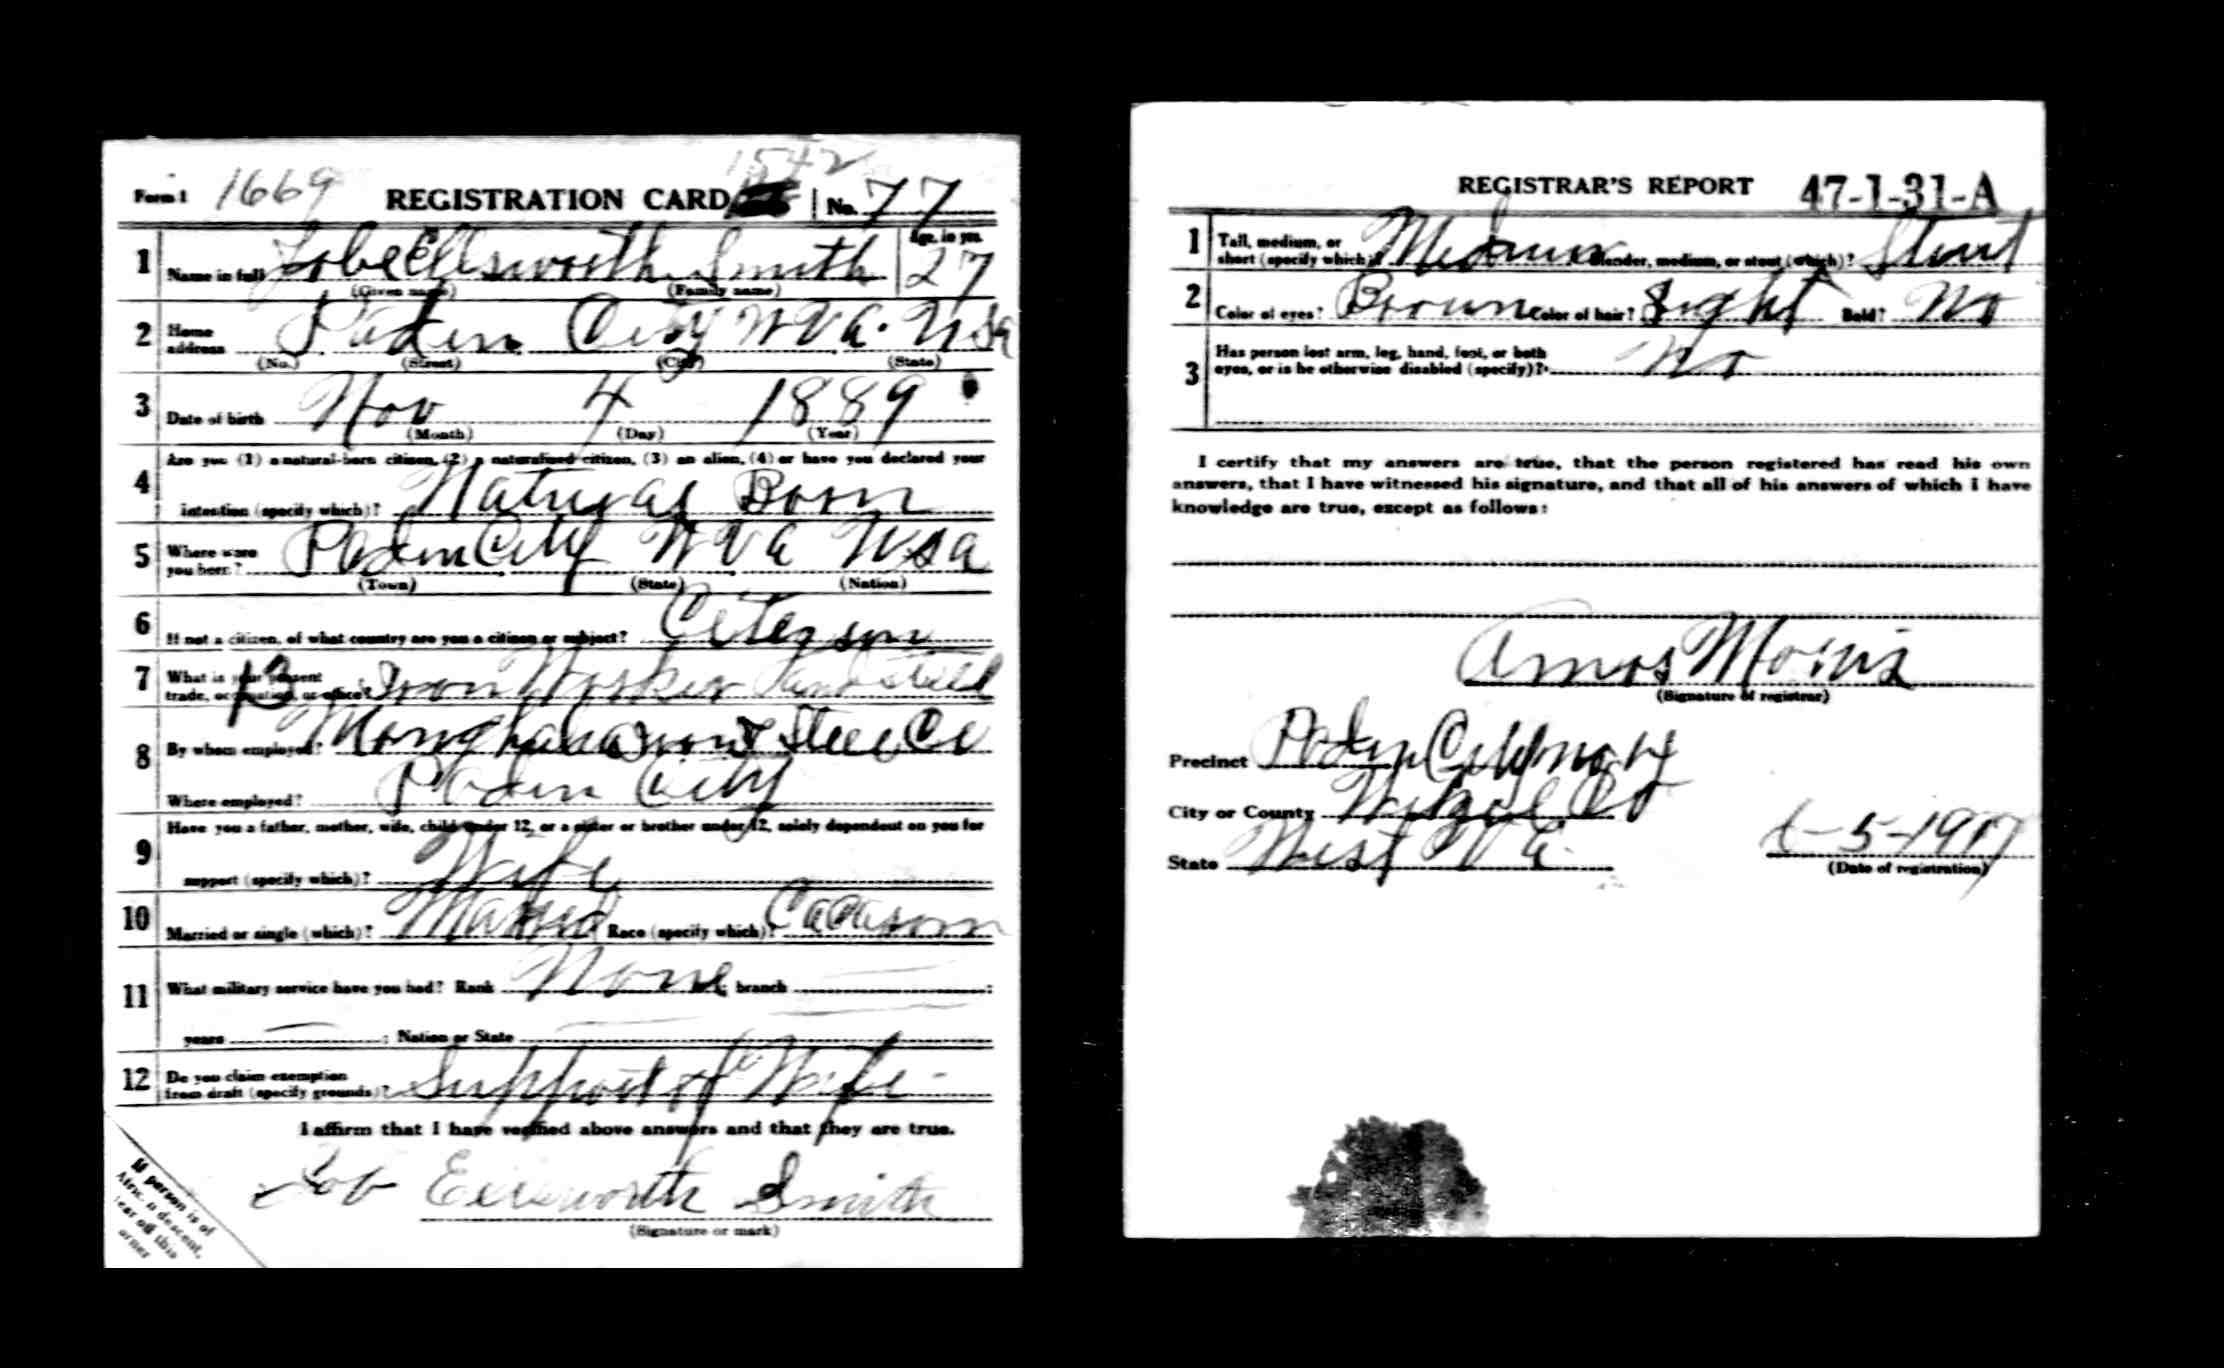 1542
Form 1 1669 REGISTRATION CARD No. 77
1 Name in full Ellsworth Smith Age, in yrs. 27
(Given name) (Family name)
2 Home address Paden City W Va. USA
(No.) (Street) (City) (State)
3 Date of birth Nov 4 1889
(Month) (Day) (Year)
Are you (1) a natural-born citizen, (2) a naturalized citizen, (3) an alien, (4) or have you declared your
4 intention (specify which)? Natural Born
5 Where were you born? Paden City W Va USA
(Town) (State) (Nation)
6 If not a citizen, of what country are you a citizen or subject?
7 What is your present trade, occupation, or office? Iron Worker
8 By whom employed? Steel Co
Where employed? Paden City
Have you a father, mother, wife, child under 12, or a sister or brother under 12, solely dependent on you for
9 support (specify which)? Wife
10 Married or single (which)? Married Race (specify which)?
11 What military service have you had? Rank None; branch ;
years ; Nation or State
12 Do you claim exemption from draft (specify grounds)? Support of Wife
I affirm that I have verified above answers and that they are true.
Ellsworth Smith
(Signature or mark)
If person is of
African descent,
tear off this
corner
REGISTRAR'S REPORT 47-1-31-A
1 Tall, medium, or short (specify which)? Medium Slender, medium, or stout (which)? Stout
2 Color of eyes? Brown Color of hair? Light Bald? No
3 Has person lost arm, leg, hand, foot, or both eyes, or is he otherwise disabled (specify)? No
I certify that my answers are true, that the person registered has read his own
answers, that I have witnessed his signature, and that all of his answers of which I have
knowledge are true, except as follows:
Amos Morris
(Signature of registrar)
Precinct Paden City
City or County Wetzel Co
State West Va.
6-5-1917
(Date of registration)